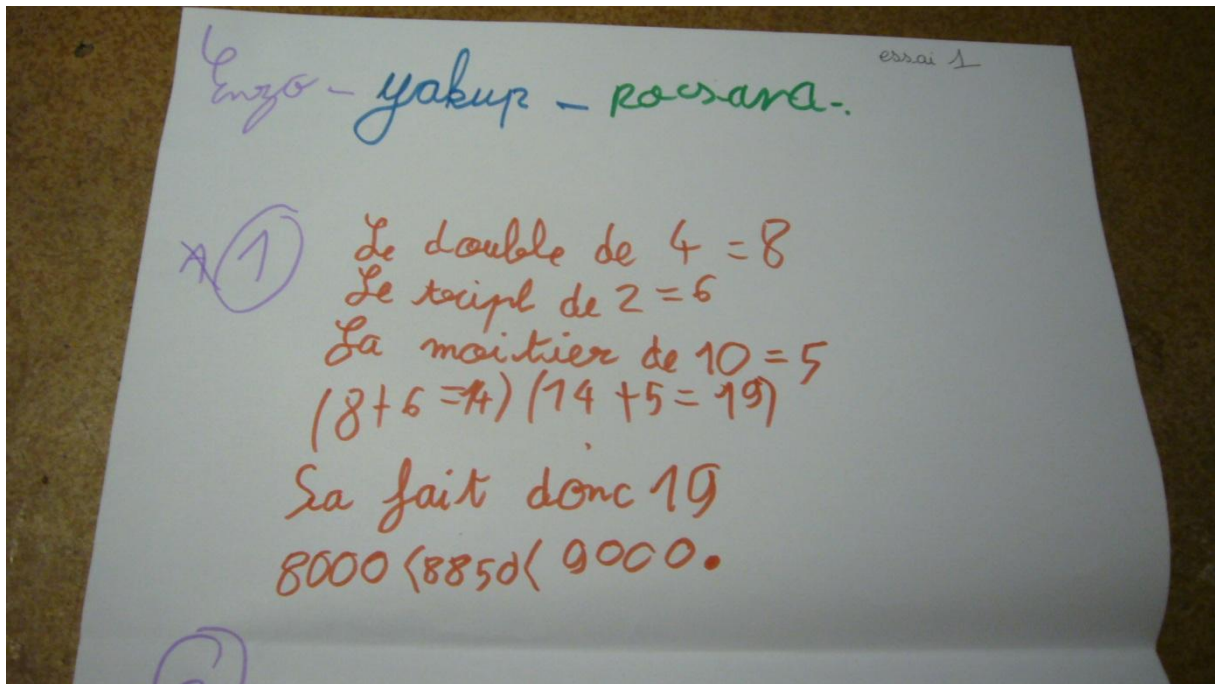 essai 1
Enzo - yakup - rocsana-.
1
Le double de 4 = 8
Le tripl de 2 = 6
La moitier de 10 = 5
(8+6=14) (14+5=19)
Sa fait donc 19
8000<8850<9000.